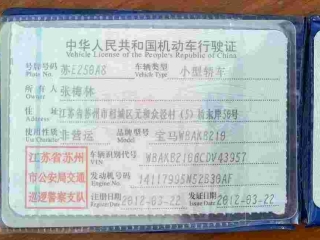 中华人民共和国机动车行驶证
Vehicle License of the People's Republic of China
号牌号码 苏EZ50A8 车辆类型 小型轿车
Plate No. Vehicle Type
所有人 张德林
Owner
住址 江苏省苏州市相城区元和众泾村
Address
使用性质 非营运 品牌型号 宝马WBAKB210
Use Character Model
江苏省苏州 车辆识别代号
VIN
市公安局交通 发动机号码
Engine No.
巡逻警察支队 注册日期 2012-03-22 发证日期 2012-03-22
Register Date Issue Date